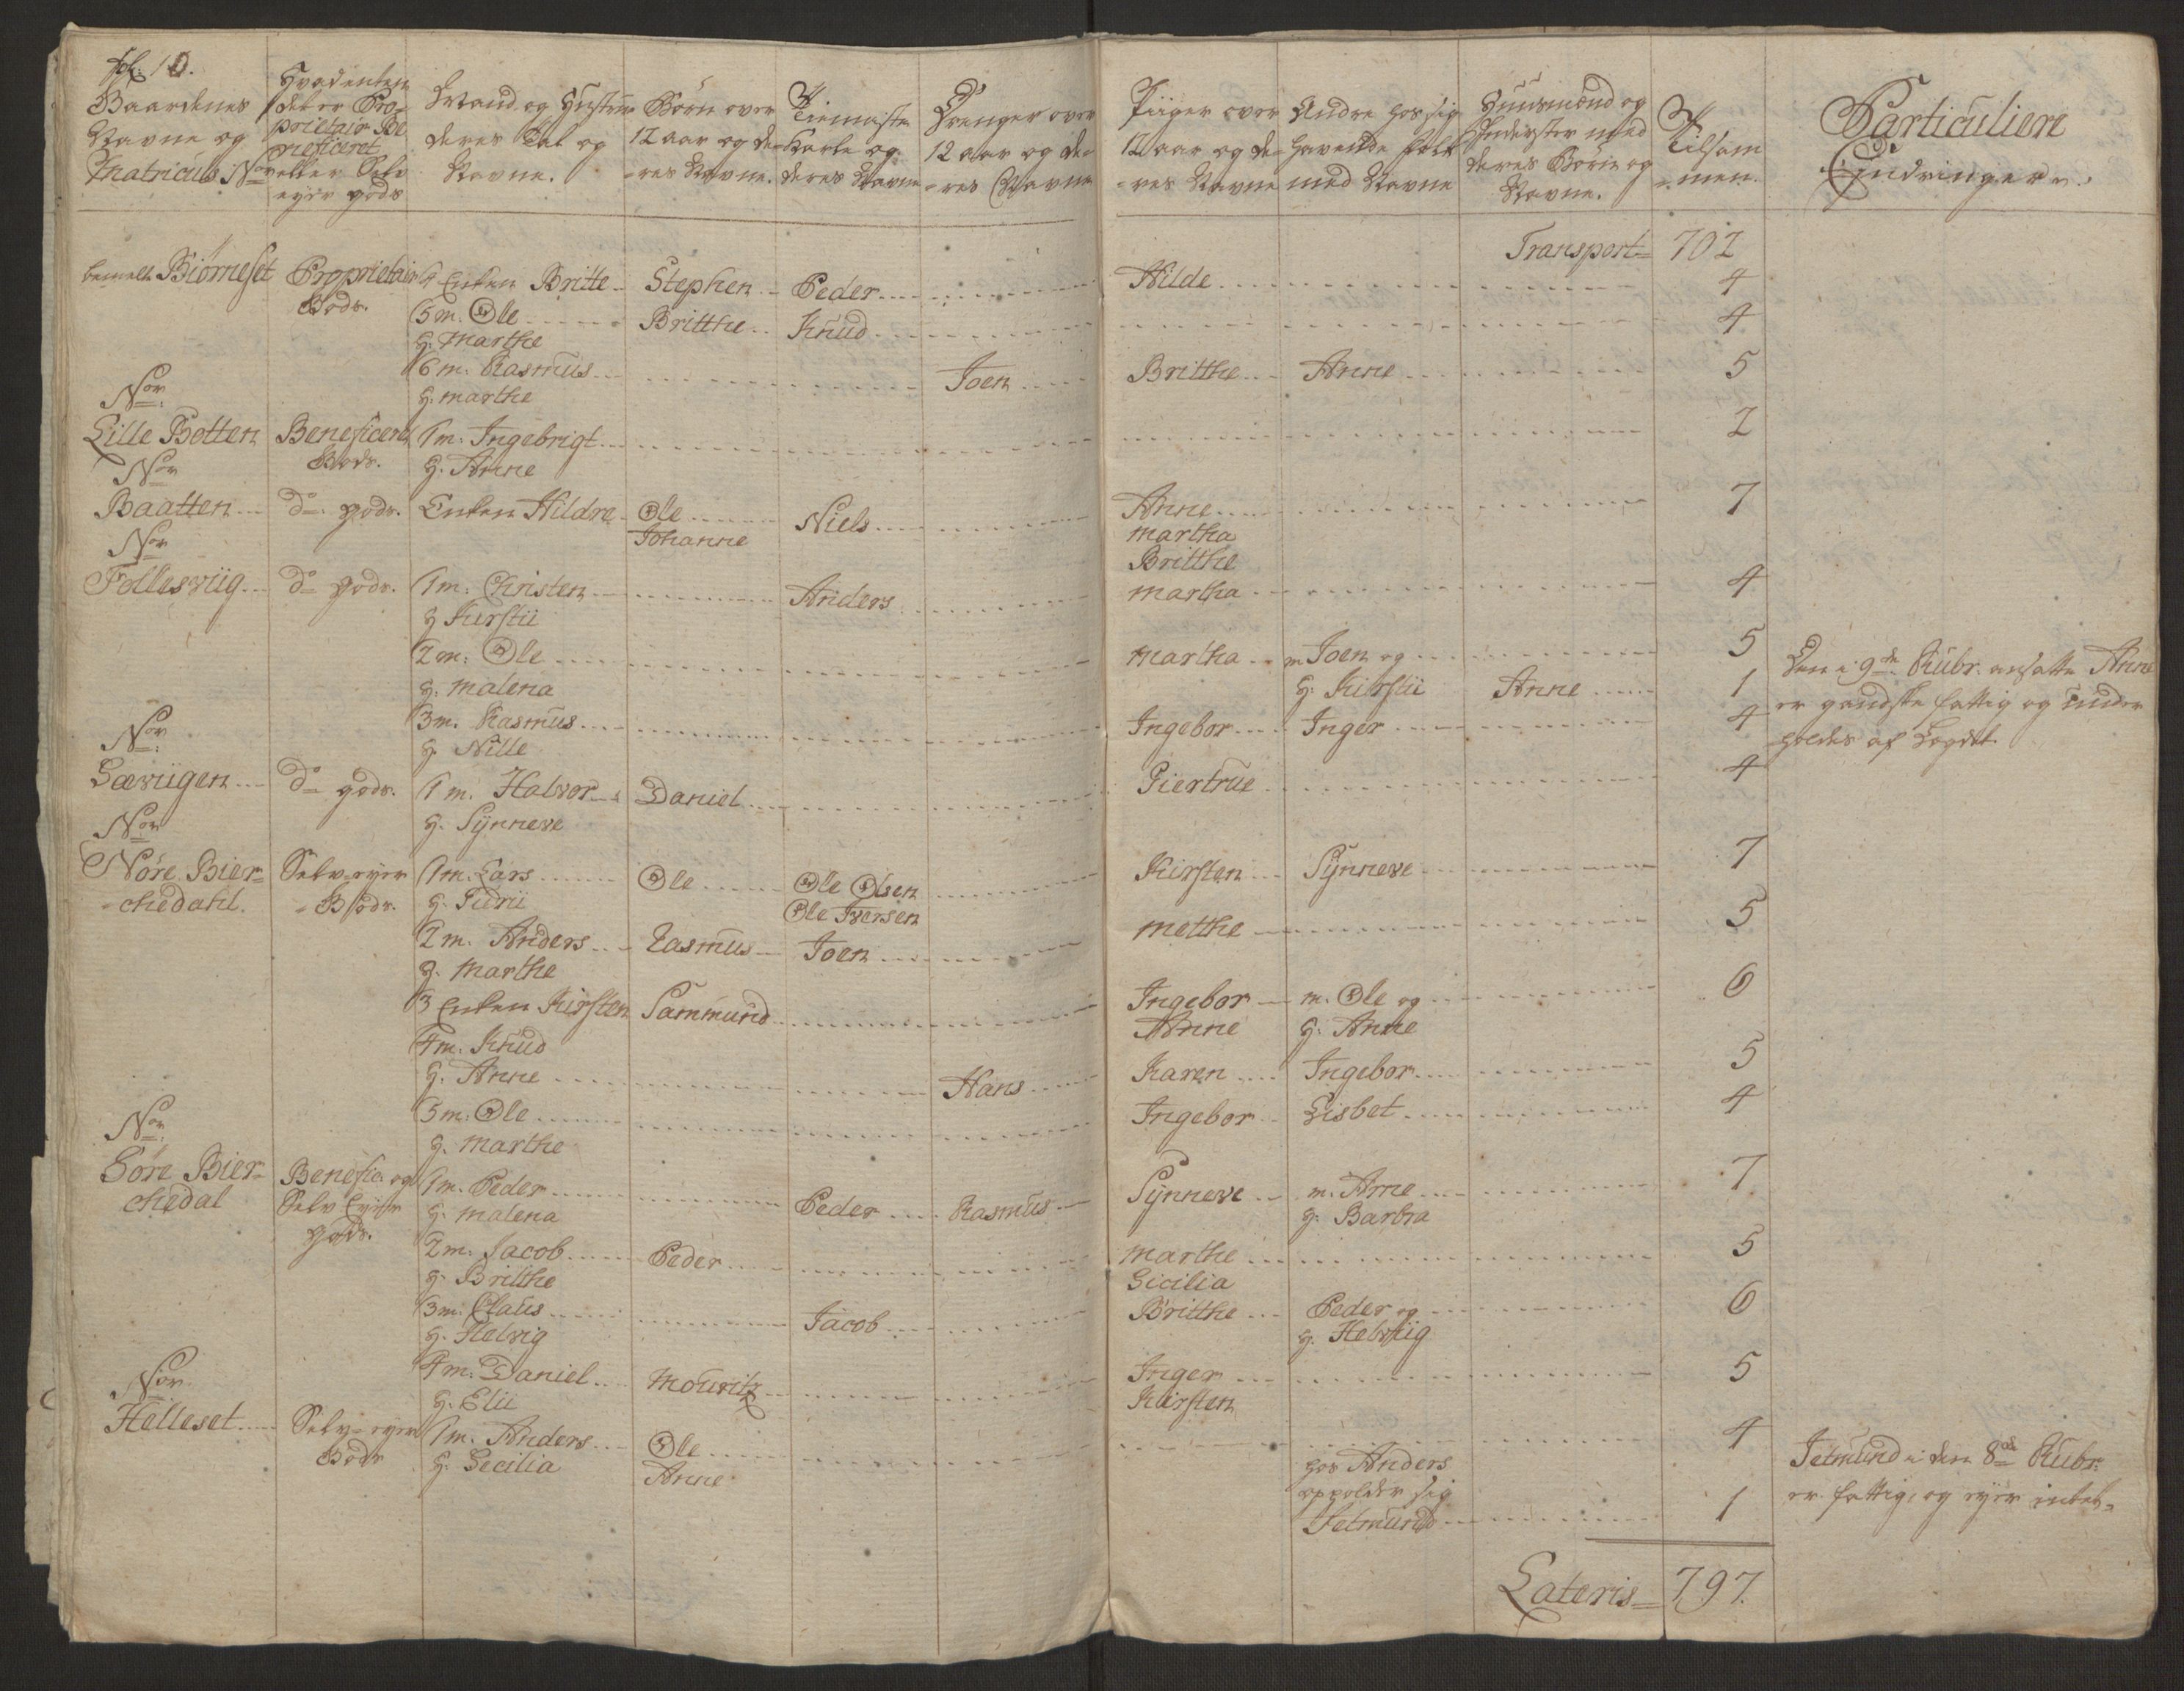 fol: 10.
Gaardenes Navne og Matriculs No
Hvadenten det er Proprietair Beneficeret eller Selv eyer gods
Mand og Hustrue deres Tal og Navne.
Børn over 12 aar og deres Navne.
Tieniste Karle og deres Navne
Drenger over 12 aar og deres Navne
Piiger over 12 aar og deres Navne
Andre hos sig havende folk med Navne
Huusmænd og Inderster med deres Børn og Navne.
Tilsammen.
Particuliere Endringer
Transport 702
bemelte Biørneset Proprietair Gods. 4 Enken Britte Stephen Peder Hilde 4
5 m. Ole Britthe Knud 4
H. Marthe
6 m. Rasmus Joen Britthe Anne 5
H. Marthe
No
Lille Botten Beneficeret Gods. 1 m. Ingebrigt 2
H. Anne
No
Baatten do gods. Enken Hildre Ole Niels Anne 7
Johanne Martha
Britthe
No
Folleswiig do gods. 1 m. Christen Anders Martha 4
H Kirstii
2 m: Ole Martha m Joen og 5
H. Malena H. Kirstii Anne 1
Den i 9de Rubr. ansatte Anne
er gandske fattig og under
holdes af Legdet
3 m. Rasmus Ingebor Inger 4
H. Nille
No
Sæwiigen do gods. 1 m. Halvor Daniel Giertrue 4
H. Synneve
No
Nore Bierchedahl. Selv eyer Gods. 1 m. Lars Ole Ole Olsen Kirsten Synneve 7
H. Turii Ole Iversen
2 m. Anders Rasmus Joen Metthe 5
H. Marthe
3 Enken Kirsten Sammund Ingebor m. Ole og 6
Anne H. Anne
4 m. Knud
H. Anne Hans Karen Ingebor 5
5 m. Ole Ingebor Lisbet 4
H. Marthe
No
Søre Bierchedal Benefic: og Selv Eyer gods. 1 m. Peder Peder Rasmus Synneve m. Arne 7
H. Malena H. Barbra
2 m. Jacob Peder Marthe 5
H. Britthe Sicilia
3 m. Claus Jacob Britthe Peder og 6
H. Helvig H. Helvig
4 m. Daniel Mouritz Inger 5
H. Elii Kirsten
No
Helleset Selv eyer Gods 1 m. Anders Ole 4
H. Secilia Anne
hos Anders
opholder sig
Jetmund 1
Jetmund i den 8de Rubr:
er fattig, og eyer intet
Lateris 797.